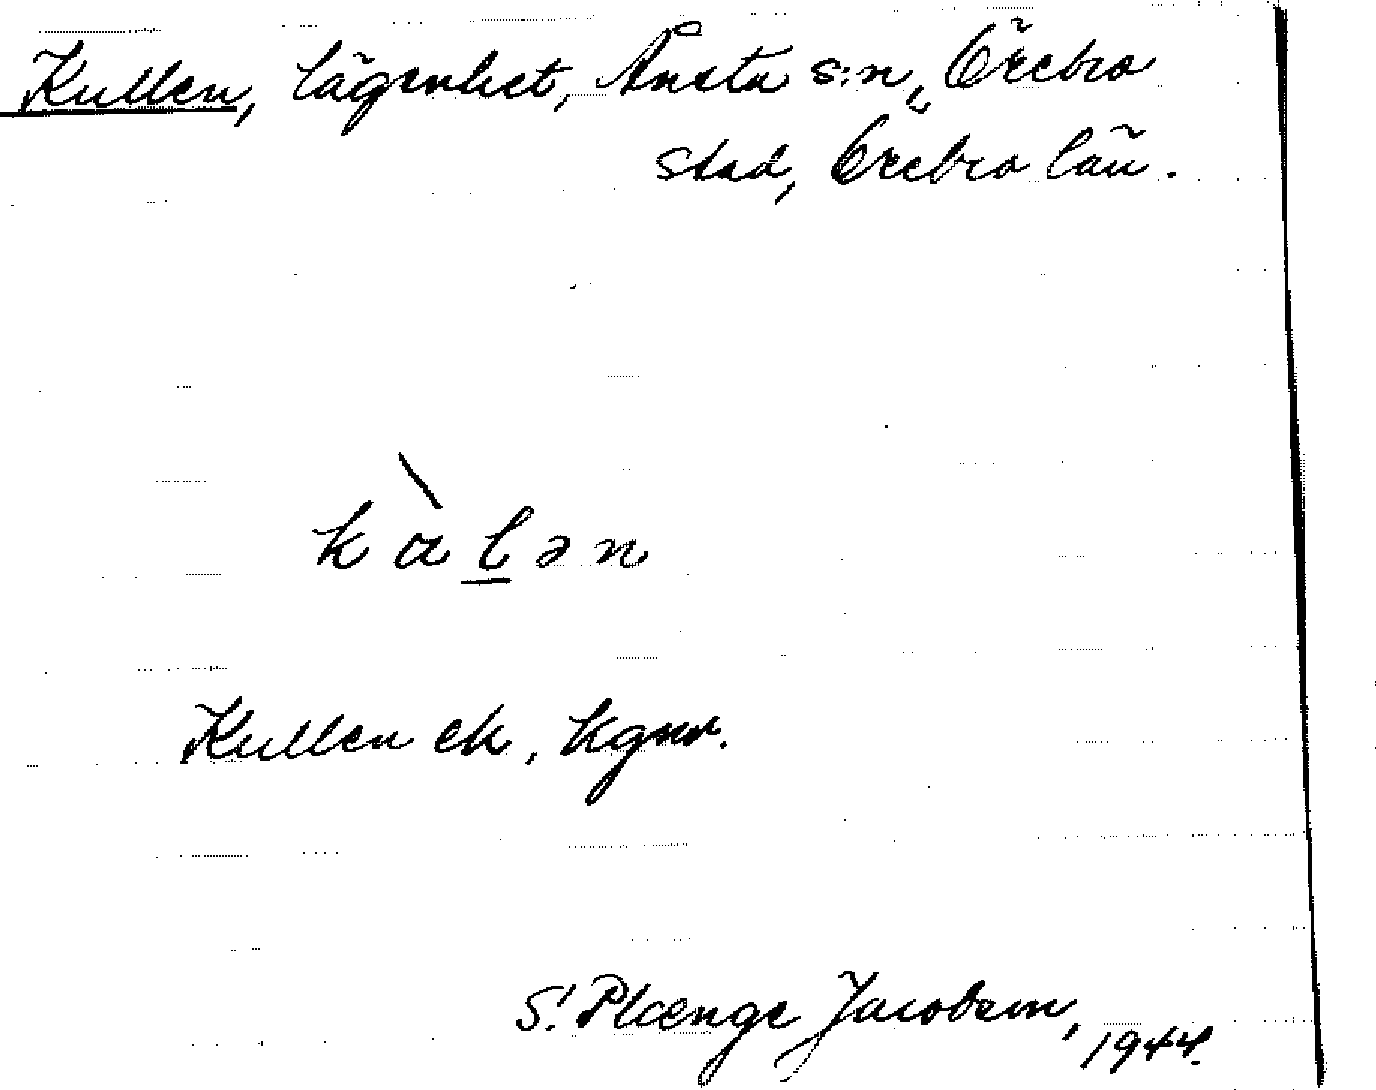 Kullen, lägenhet, Ånsta s:n, Örebro
stad, Örebro län.
kàlən
Kullen ek, kgmr.
S. Plænge Jacobson, 1944.